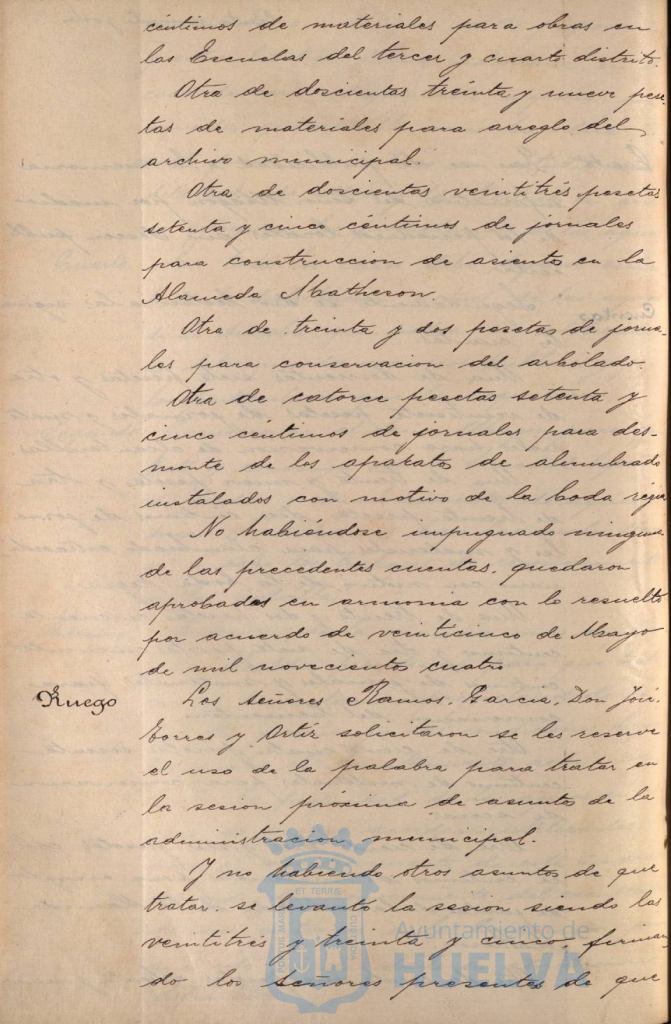 céntimos de materiales para obras en
las Escuelas del tercer y cuarto distrito.
Otra de doscientas treinta y nueve pese-
tas de materiales para arreglo del
archivo municipal.
Otra de doscientas veintitrés pesetas
setenta y cinco céntimos de jornales
para construccion de asiento en la
Alameda Matheson.
Otra de treinta y dos pesetas de jorna-
les para conservacion del arbolado.
Otra de catorce pesetas setenta y
cinco céntimos de jornales para des-
monte de los aparatos de alumbrado
instalados con motivo de la boda regia
No habiéndose impugnado ninguna
de las precedentes cuentas, quedaron
aprobadas en armonia con lo resuelto
por acuerdo de veinticinco de Mayo
de mil novecientos cuatro
Ruego Los señores Ramos, Garcia, Don José
Torres y Ortíz solicitaron se les reserve
el uso de la palabra para tratar en
la sesion próxima de asuntos de la
administracion municipal.
Y no habiendo otros asuntos de que
tratar se levantó la sesion siendo las
veintitrés y treinta y cinco, firman-
do los señores presentes de que
Ayuntamiento de
HUELVA